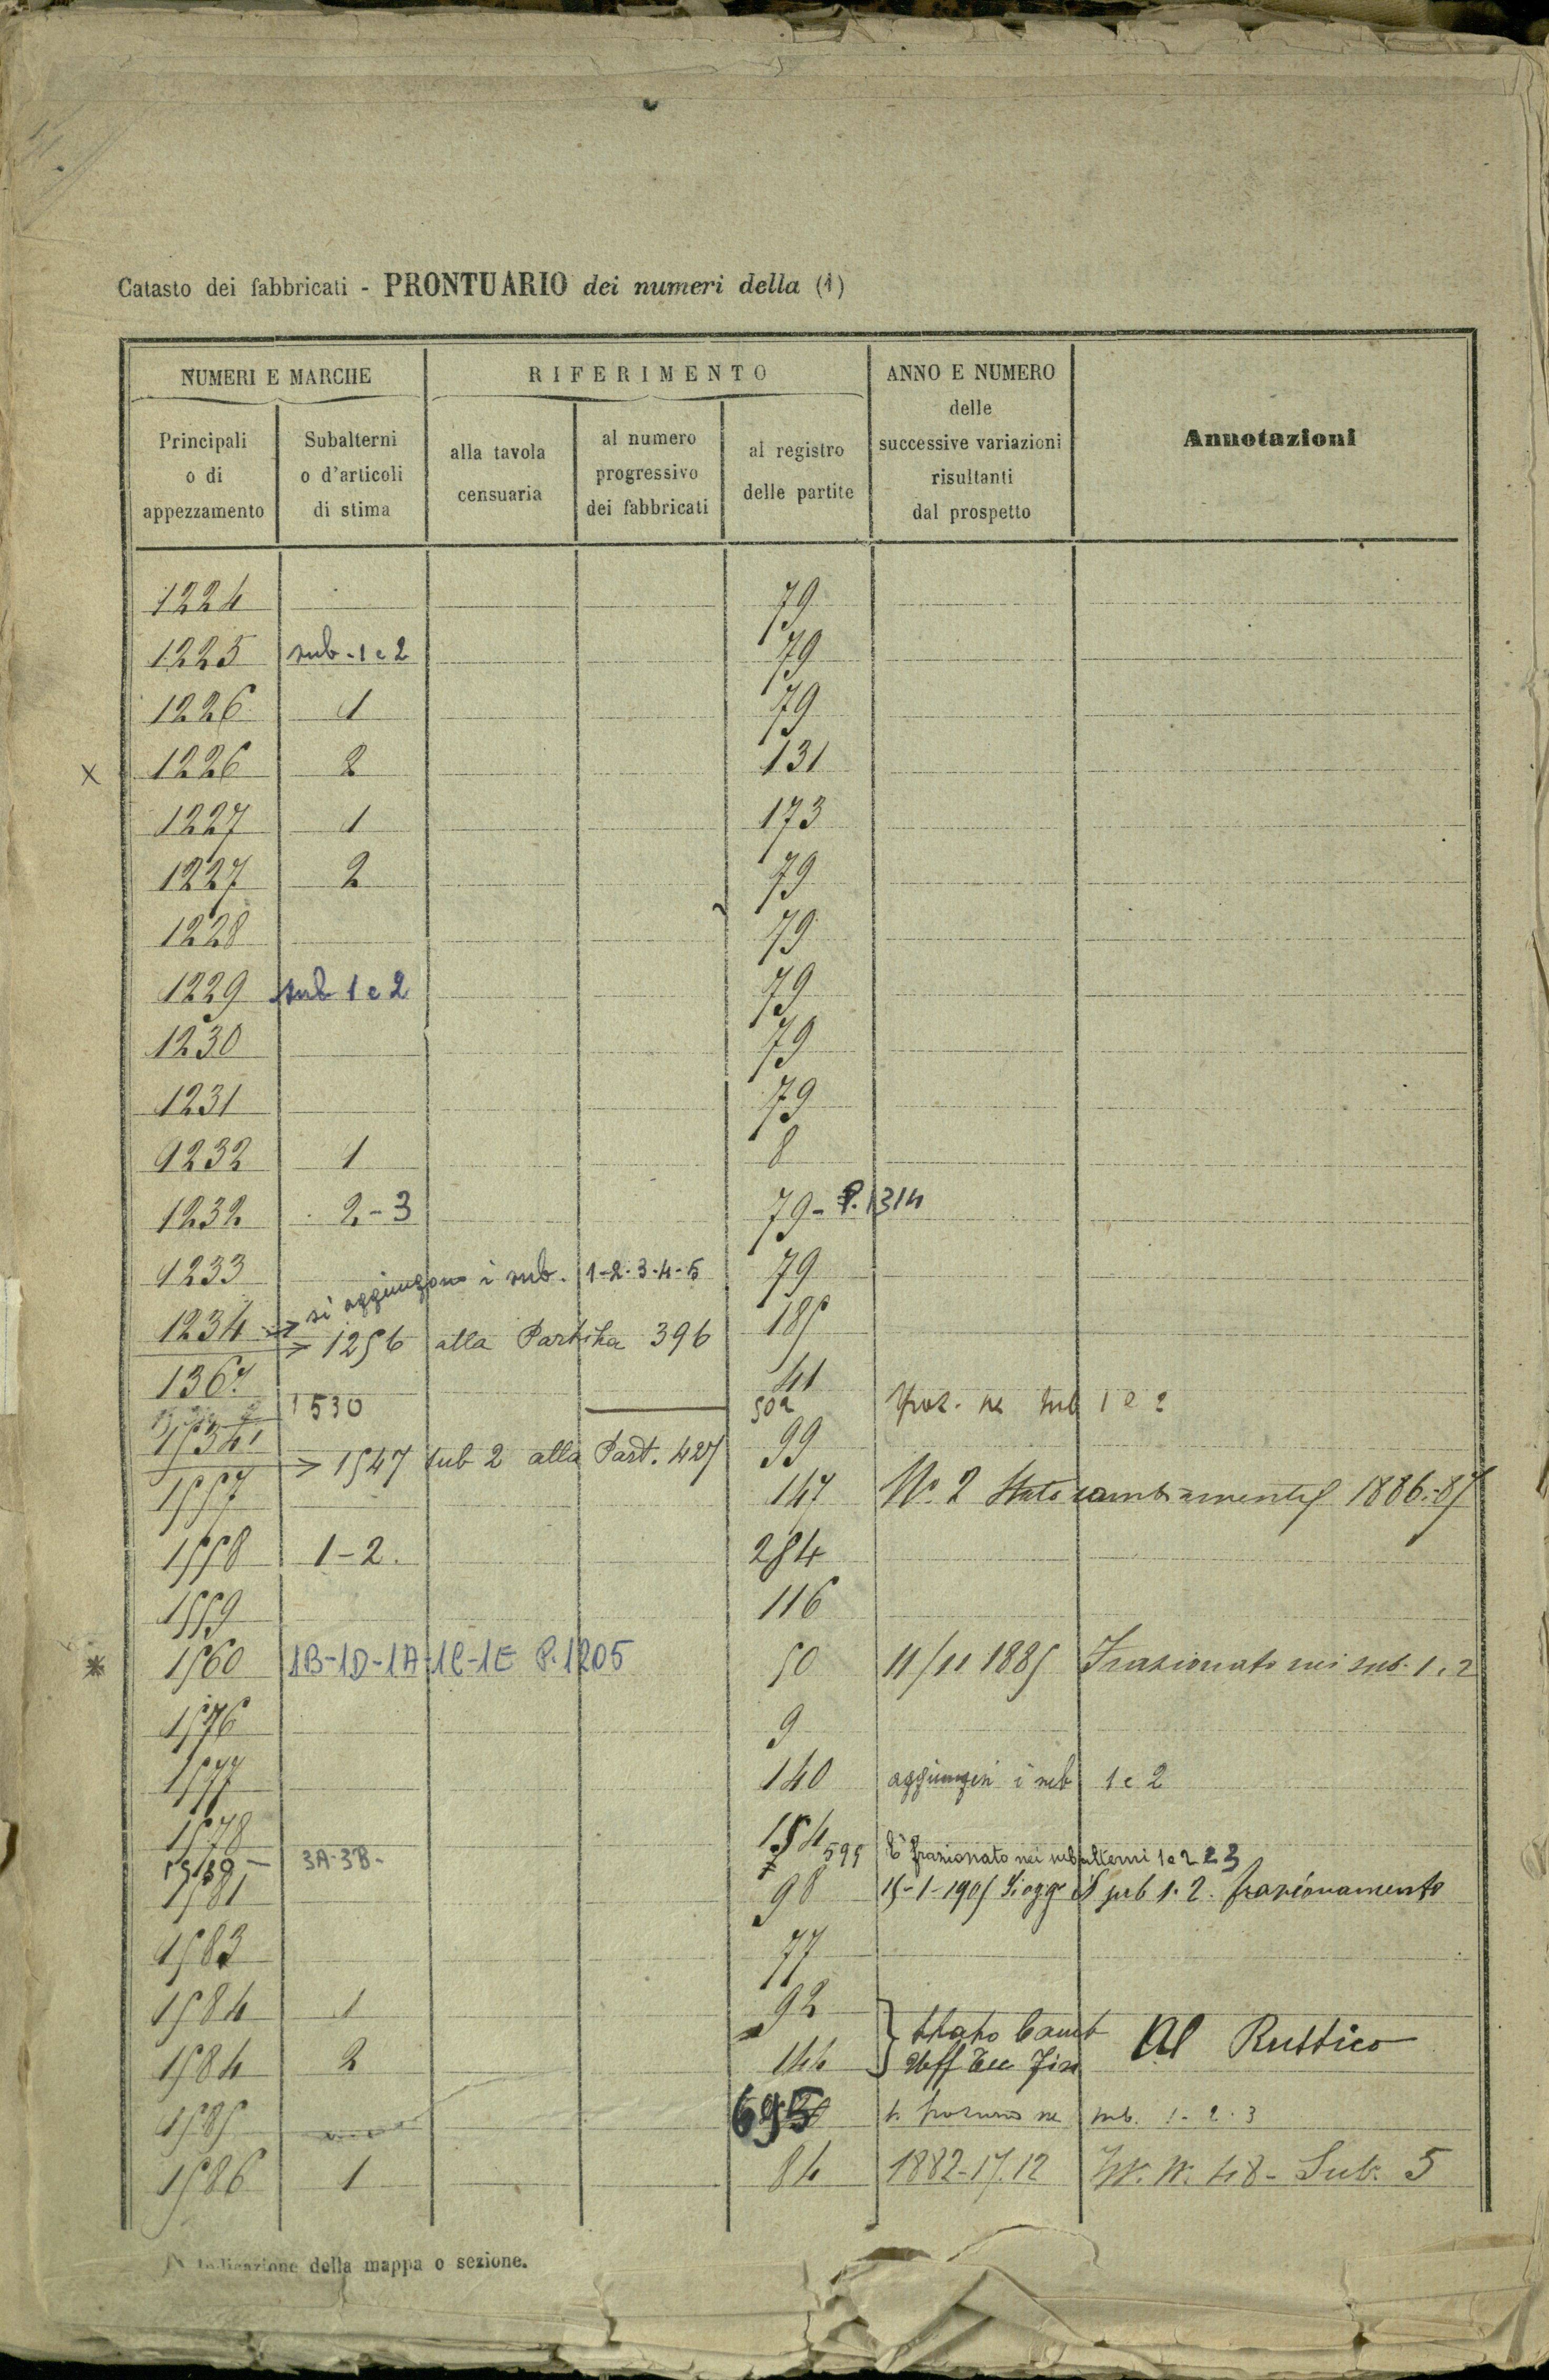 Catasto dei fabbricati - PRONTUARIO dei numeri della (1)
NUMERI E MARCHE
RIFERIMENTO
ANNO E NUMERO
delle
successive variazioni
risultanti
dal prospetto
Annotazioni
Principali
o di
appezzamento
Subalterni
o d'articoli
di stima
alla tavola
censuaria
al numero
progressivo
dei fabbricati
al registro
delle partite
1224 79
1225 sub - 1 e 2 79
1226 1 79
x 1226 2 131
1227 1 173
1227 2 79
1228 79
1229 sub 1 e 2 79
1230 79
1231 79
1232 1 8
1232 2-3 79 - P. 1314
1233 79
si aggiungono i sub. 1-2-3-4-5
1234 185
→ 1256 alla Partita 396
1367 41
1530 502 sub 1 e 2
1534 99
→ 1547 sub 2 alla Part. 427
1557 147 N. 2 Stato cambiamenti 1886-87
1558 1-2. 254
1559 116
* 1560 1B-1D-1A-1C-1E P. 1205 50 11/11 1885 Frazionato nei sub. 1, 2
1576 9
1577 140 aggiungesi i sub 1 e 2
1578 154
3A-3B- 595 È frazionato nei subalterni 1 e 2 e 3
1581 98 15-1-1905 sub 1. 2. frazionamento
1583 77
1584 1 92
Stato Camb Al Rustico
1584 2 144
1585 695 sub. 1-2-3
1586 1 84 1882-17.12 48 - Sub. 5
Indicazione della mappa o sezione.